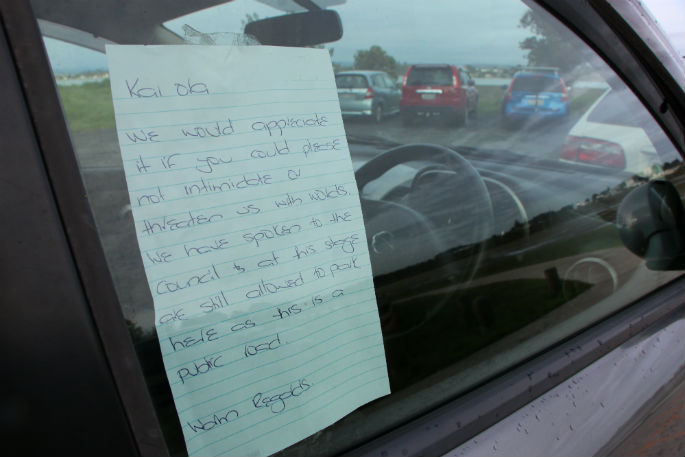 Kai ola
We would appreciate
it if you could please
not intimidate or
threaten us with words.
We have spoken to the
council & at this stage
are still allowed to park
here as this is a
public road.
Warm Regards.